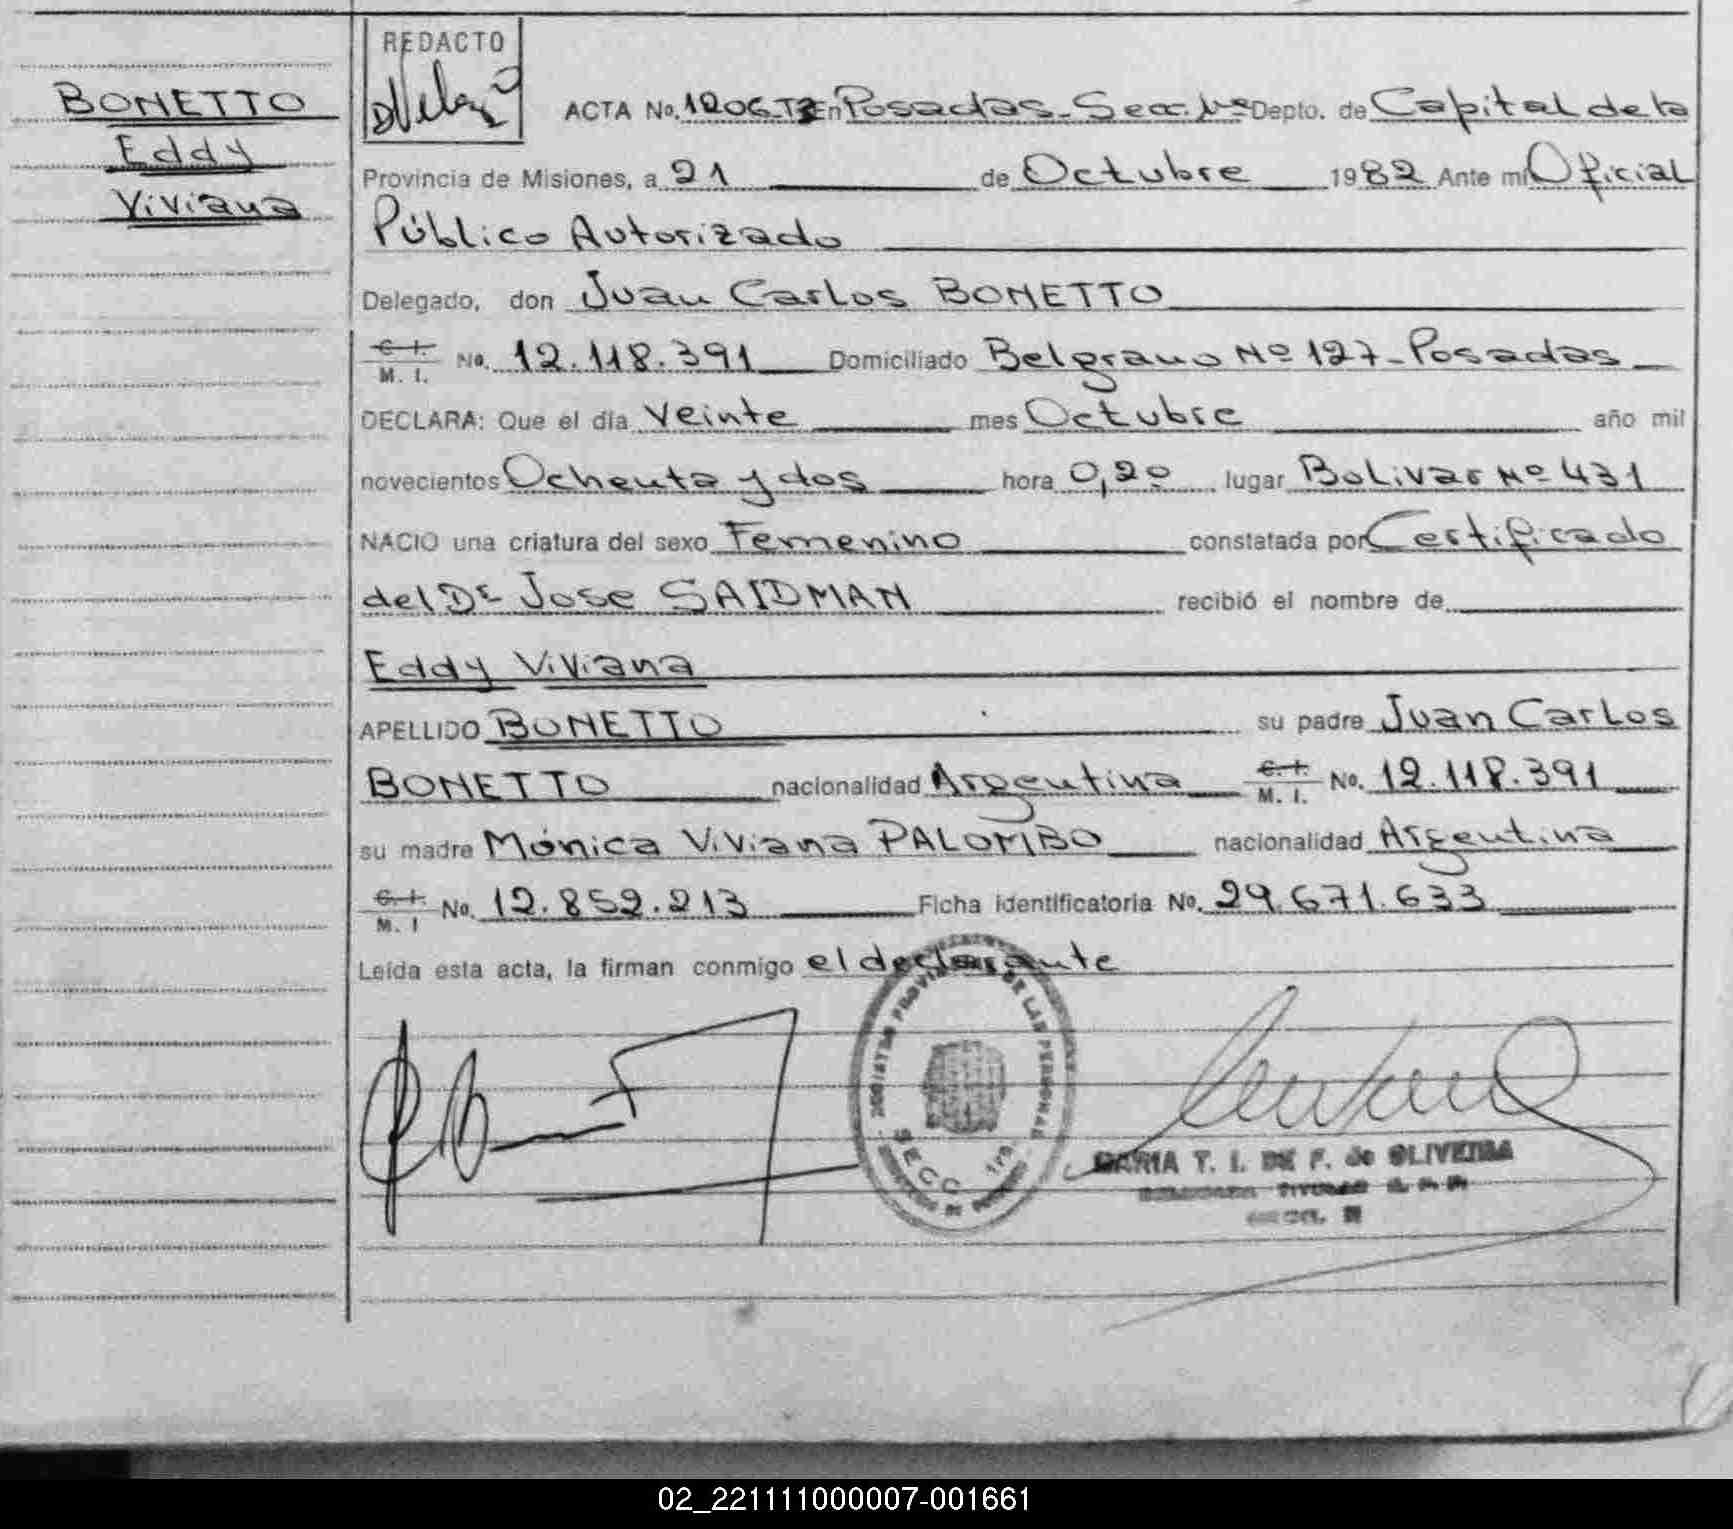 BONETTO
Eddy
Viviana
REDACTO
ACTA No. 1206 En Posadas - Secc. 1ra Depto. de Capital de la
Provincia de Misiones, a 21 de Octubre 1982 Ante mi Oficial
Público Autorizado
Delegado, don Juan Carlos BONETTO
C. I.
M. I. No. 12.118.391 Domiciliado Belgrano Nº 127 - Posadas
DECLARA: Que el día Veinte mes Octubre año mil
novecientos Ochenta y dos hora 0,20 lugar Bolivar Nº 431
NACIO una criatura del sexo Femenino constatada por Certificado
del Dr Jose SAIDMAN recibió el nombre de
Eddy Viviana
APELLIDO BONETTO su padre Juan Carlos
BONETTO nacionalidad Argentina C. I. M. I. No. 12.118.391
su madre Mónica Viviana PALOMBO nacionalidad Argentina
C. I. M. I No. 12.852.213 Ficha identificatoria No. 29.671.633
Leída esta acta, la firman conmigo el declarante
REGISTRO PROVINCIAL DE LAS PERSONAS
SECC. 1ra
MARIA T. I. DE F. de OLIVEIRA
02_221111000007-001661